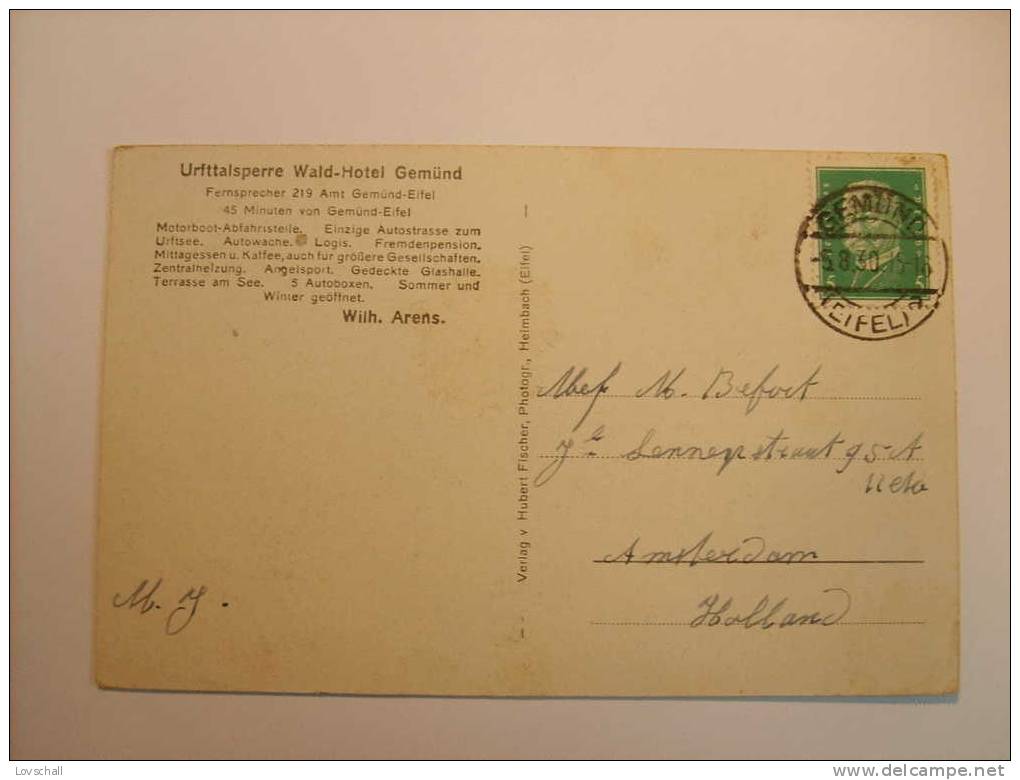 Urfttalsperre Wald-Hotel Gemünd
Fernsprecher 219 Amt Gemünd-Eifel
45 Minuten von Gemünd-Eifel
Motorboot-Abfahrtstelle. Einzige Autostrasse zum
Urftsee. Autowache. Logis. Fremdenpension.
Mittagessen u. Kaffee, auch für größere Gesellschaften.
Zentralheizung. Angelsport. Gedeckte Glashalle.
Terrasse am See. 5 Autoboxen. Sommer und
Winter geöffnet.
Wilh. Arens.
M. J.
Verlag v Hubert Fischer, Photogr., Heimbach (Eifel)
GEMÜND
-5.8.30.
(EIFEL)
5
5
Mej M. Befort
Lennepstraat 95 A
Amsterdam
Holland
Lovschall
www.delcampe.net